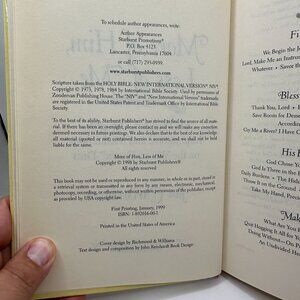 To schedule author appearances, write:
Author Appearances
Starburst Promotions
P.O. Box 4123
Lancaster, Pennsylvania 17604
or call (717) 293-0939.
www.starburstpublishers.com
Scripture taken from the HOLY BIBLE: NEW INTERNATIONAL VERSION® NIV®.
Copyright © 1973, 1978, 1984 by International Bible Society. Used by permission of
Zondervan Publishing House. The "NIV" and "New International Version" trademarks
are registered in the United States Patent and Trademark Office by International Bible
Society.
To the best of its ability, Starburst Publishers® has strived to find the source of all mate-
rial. If there has been an oversight, please contact us and we will make any correction
deemed necessary in future printings. We also declare that to the best of our knowledge
all material (quoted or not) contained herein is accurate, and we shall not be held liable
for the same.
More of Him, Less of Me
Copyright © 1998 by Starburst Publishers®
All rights reserved.
This book may not be used or reproduced in any manner, in whole or in part, stored in
a retrieval system or transmitted in any form by any means, electronic, mechanical,
photocopy, recording, or otherwise, without written permission of the publisher, except
as provided by USA copyright law.
First Printing, January, 1999
ISBN: 1-892016-00-
Printed in the United States of America
Cover design by Richmond & Williams
Text design and composition by John Reinhardt Book Design
Fi
We Begin the
Lord, Make Me an Instrum
Whatever • Savor th
Bless
Thank You, Lord •
Save Room
Accept
Cry Me a River? I Have
God Is H
God Is There in the
Daily Burdens • The Hidden
Throw It on the Ground
Take My Hand, Precio
Mak
What Are You
Quit Hogging It All for You
Doing Without—On P
An Undivided H